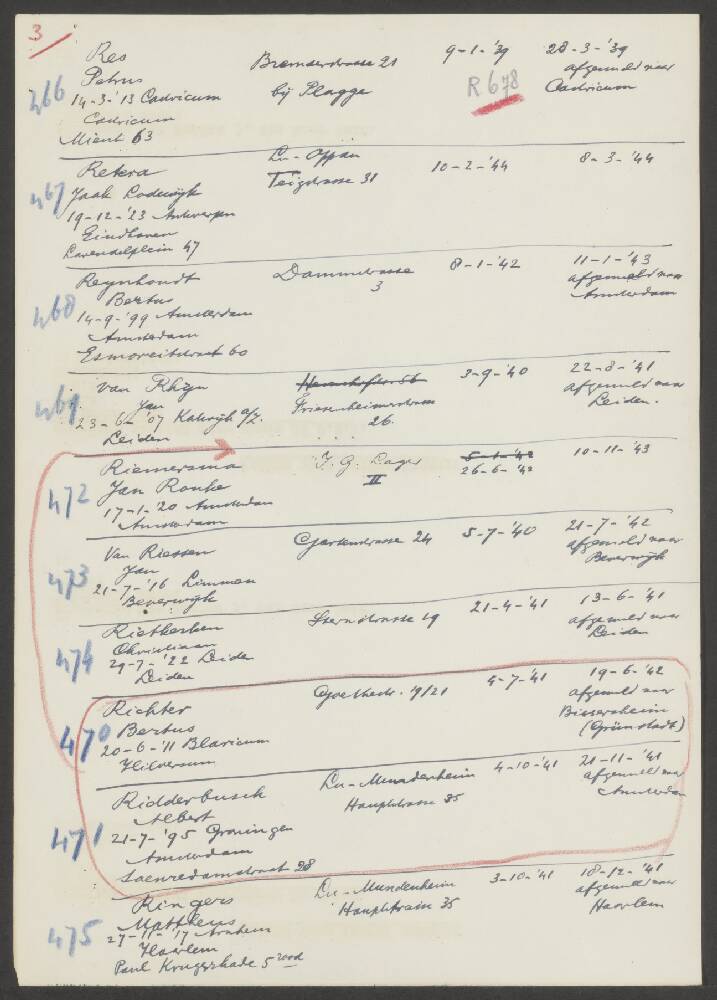 3
466
Res
Petrus
14-3-'13 Castricum
Castricum
Mient 63
Bremserstrasse 21
bij Plagge
9-1-'39
R 678
28-3-'39
afgemeld naar
Castricum
467
Retera
Jaak Lodewijk
19-12-'23 Antwerpen
Eindhoven
Lavendelplein 47
Lu-Oppau
31
10-2-'44
8-3-'44
468
Reynhoudt
Bertus
14-9-'99 Amsterdam
Amsterdam
Esmoreitstraat 60
Dammstrasse
3
8-1-'42
11-1-'43
afgemeld naar
Amsterdam
469
van Rhijn
Jan
23-6-'07 Katwijk a/z.
Leiden
Friesenheimerstrasse
26.
3-9-'40
22-8-'41
afgemeld naar
Leiden.
472
Riemersma
Jan Rouke
17-1-'20 Amsterdam
Amsterdam
I. G. Lager
II
5-1-'42
26-6-'42
10-11-'43
473
Van Riessen
Jan
21-7-'16 Limmen
Beverwijk
Gartenstrasse 24
5-7-'40
21-7-'42
afgemeld naar
Beverwijk
474
Rietkerken
Christiaan
29-7-'22 Leiden
Leiden
Sternstrasse 19
21-4-'41
13-6-'41
afgemeld naar
Leiden
470
Richter
Bertus
20-6-'11 Blaricum
Hilversum
Goethestr. 19/21
4-7-'41
19-6-'42
afgemeld naar
Bissersheim
(Grünstadt)
471
Ridderbusch
Albert
21-7-'95 Groningen
Amsterdam
Saenredamstraat 28
Lu-Mundenheim
Hauptstrasse 35
4-10-'41
21-11-'41
afgemeld naar
Amsterdam
475
Ringers
Mattheus
27-11-'17 Arnhem
Haarlem
Paul Krugerkade 5 rood
Lu-Mundenheim
Hauptstrasse 35
3-10-'41
18-12-'41
afgemeld naar
Haarlem